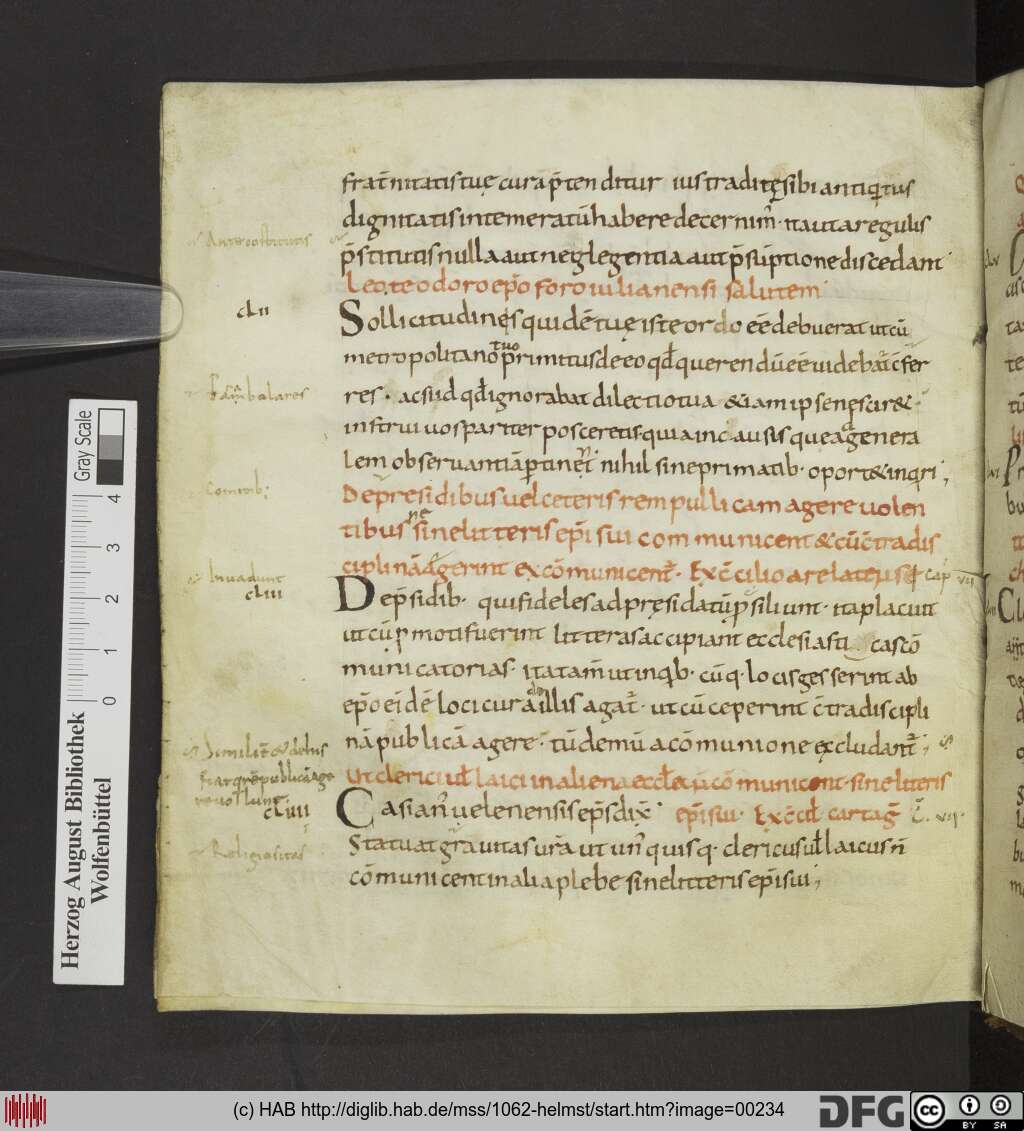 frat̄nitatis tuę cura p̄tenditur ius traditę sibi antiq̣tus
dignitatis intemeratū habere decernim᷒ · ita ut a regulis
p̄stitutis nulla aut neglegentia aut p̄sūptione discedant
Leo teodoro ep̄o foroiulianensi salutem
CLII
Sollicitudines quidē tuę iste ordo eē debuerat ut cū
metropolitano tuo primitus de eo qd̄ querendū eē videbat̄ c̄fer
res · ac si id qd̄ ignorabat dilectio tua & iam ipse nescir&
instrui vos pariter posceretis · quia in causis que ad genera
lem observantiā p̄tinēt nihil sine primatib· oport& inq̣ri;
De presidibus vel ceteris rem pullicam agere volen
tibus ne sine litteris ep̄i sui communicent & cū c̄tra dis
ciplinā aḡerint excōmunicent̄ · Ex c̄cilio arelatensi cap̄ vii
Invadunt
CLIII
De p̄sidib· qui fideles ad presidatū p̄siliunt · ita placuit
ut cū p̄moti fuerint litteras accipiant ecclesiasticas cō
municatorias · ita tam̄ ut in q̣b· cūq· locis gesserint ab
ep̄o eidē loci cura de illis agat̄ · ut cū ceperint c̄tra discipli
nā publicā agere · tū demū a cōmunione excludant̄;
Similit̄ & de his
qui rēpublicā age
re volunt
Ut clerici vl̄ laici in aliena ecc̄lea n̄ cōmunicent · sine litteris
CLIIII
Casian᷒ velenensis ep̄s dix̄ ep̄i sui · Ex c̄cil̄ cartag̃ c̄. vii·
Statuat gravitas vr̄a ut un᷒quisq· clericus vl̄ laicus n̄
Religiositas
cōmunicent in alia plebe sine litteris ep̄i sui;
Gray Scale
4
3
2
1
0
Herzog August Bibliothek
Wolfenbüttel
(c) HAB http://diglib.hab.de/mss/1062-helmst/start.htm?image=00234
DFG
cc
BY SA